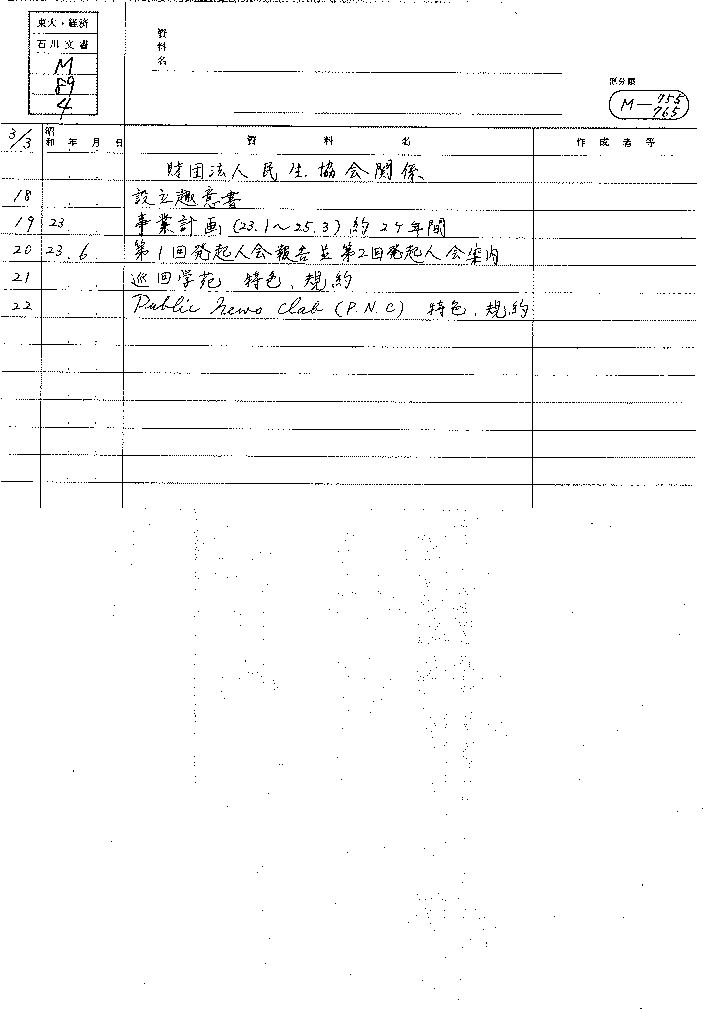 東大・経済
石川文書
M
89
4
資料名
原分類
M-755
765
3/3 昭和 年 月 日 資料名 作成者等
財団法人民生協会関係
18 設立趣意書
19 23 事業計画(23.1~25.3)約2ヶ年間
20 23.6 第1回発起人会報告並第2回発起人会案内
21 巡回学苑 特色、規約
22 Public News Club (P.N.C) 特色、規約